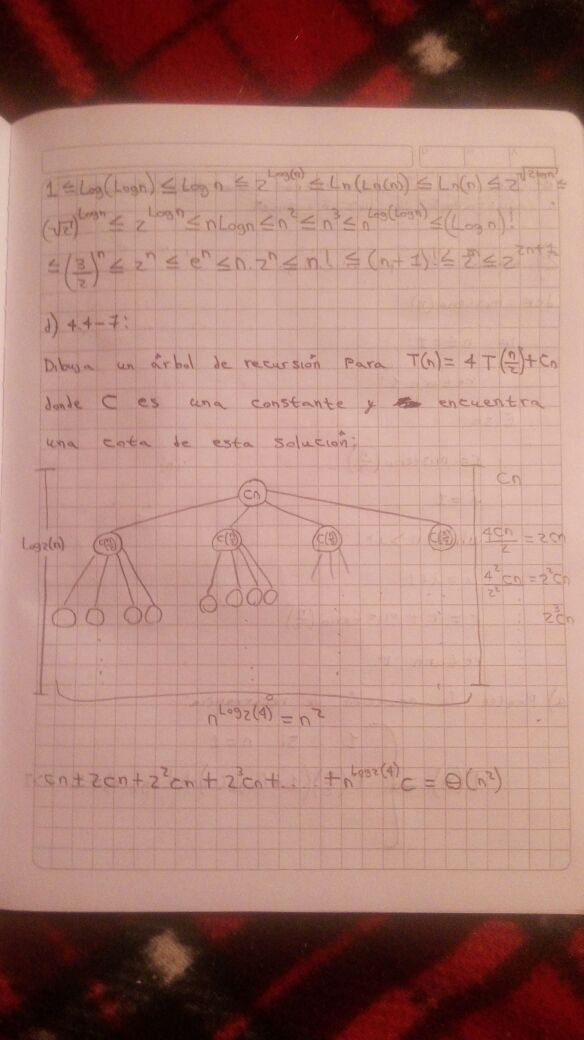 1 ≤ Log(Logn) ≤ Log n ≤ 2^Log(n) ≤ Ln(Ln(n)) ≤ Ln(n) ≤ 2^√2logn ≤
(√2)^Logn ≤ 2^Logn ≤ nLogn ≤ n² ≤ n³ ≤ n^Log(Logn) ≤ (Log n)!
≤ (3/2)^n ≤ 2^n ≤ e^n ≤ n.2^n ≤ n! ≤ (n+1)! ≤
d) 4.4-7:
Dibuja un árbol de recursión para T(n) = 4T(n/2) + Cn
donde C es una constante y encuentra
una cota de esta solución:
Cn
Cn
Log2(n)
C(n/2) C(n/2) C(n/2) C(n/2)
4cn/2 = 2cn
4²/2² cn = 2²cn
2³cn
n^Log2(4) = n²
cn + 2cn + 2²cn + 2³cn + ... + n^Log2(4) c = Θ(n²)